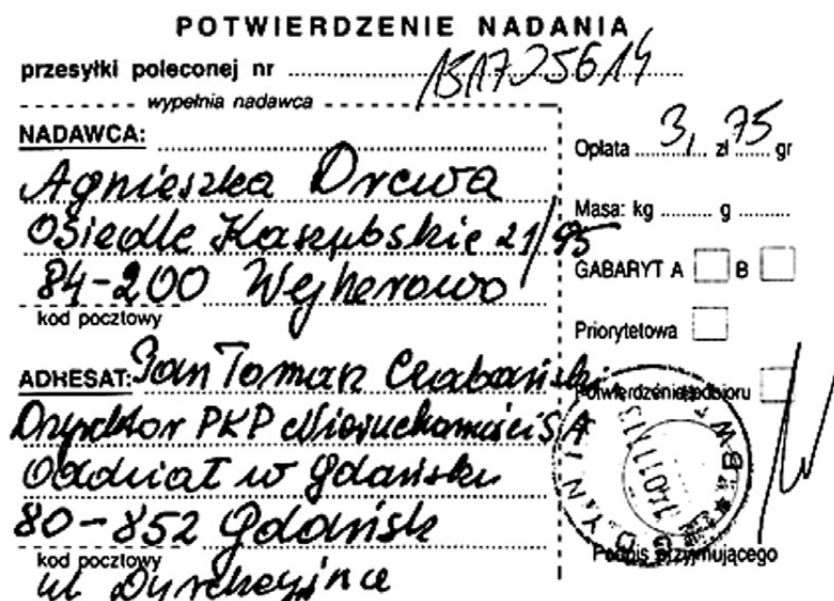 POTWIERDZENIE NADANIA
przesyłki poleconej nr
wypełnia nadawca
NADAWCA:
Agnieszka Drewa
Osiedle Kaszubskie 21/95
84-200 Wejherowo
kod pocztowy
ADRESAT: Pan Tomasz Czabański
Dyrektor PKP Nieruchomości SA
Oddział w Gdańsku
80-852 Gdańsk
kod pocztowy
ul Dyrekcyjna
Opłata 3, zł 75 gr
Masa: kg g
GABARYT A B
Priorytetowa
Potwierdzenie odbioru
GDYNIA
Podpis przyjmującego